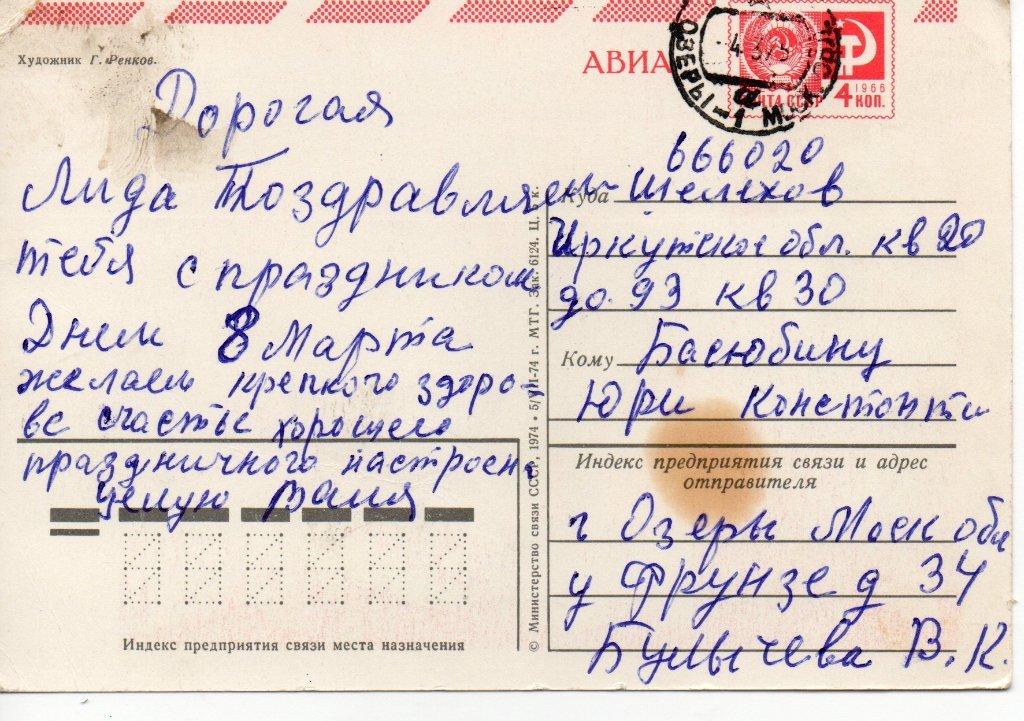 Художник Г. Ренков.
АВИА
ОЗЕРЫ-1 МОСК
1966
4 КОП.
Дорогая
Лида Поздравляем
тебя с праздником
Днем 8 Марта
желаем крепкого здоро-
ве счастье хорошего
праздничного настроен
целую Валя
666020
Куда Шелехов
Иркутской обл. кв 20
до 93 кв 30
Кому Басюбину
Юри Константи
Индекс предприятия связи и адрес
отправителя
г Озеры Моск обл
у Фрунзе д 34
Булычева В.К.
Индекс предприятия связи места назначения
© Министерство связи СССР, 1974 • 5/VII-74 г. МТГ. Зак. 6124. Ц. к.